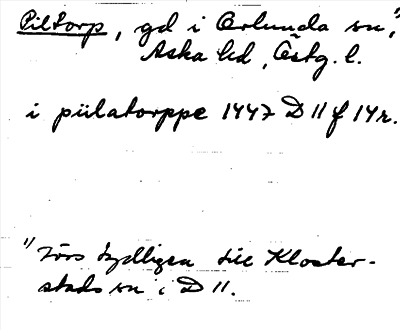 Piltorp, gd i Orlunda sn,¹⁾
Aska hd, Östg. l.
i piilatorppe 1447 D 11 f 14r.
¹⁾ Förs tydligen till Kloster-
stads sn i D 11.